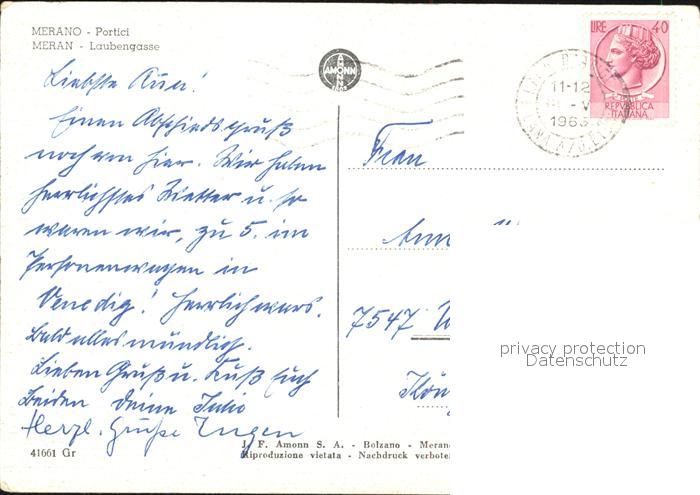 MERANO - Portici
MERAN - Laubengasse
Liebste
Einen Abschiedsgruß
noch von hier. Wir haben
herrlichstes Wetter u. so
waren wir, zu 5. im
Personenwagen in
Venedig! Herrlich wars.
Bald alles mündlich.
Lieben Gruß u. Kuß Euch
Beiden Deine
Herzl. Grüße Eugen
41661 Gr
AMONN
LIRE 40
REPVBBLICA
ITALIANA
11-12
V
Frau
7547
privacy protection
Datenschutz
J. F. Amonn S. A. - Bolzano - Meran
Riproduzione vietata - Nachdruck verbote